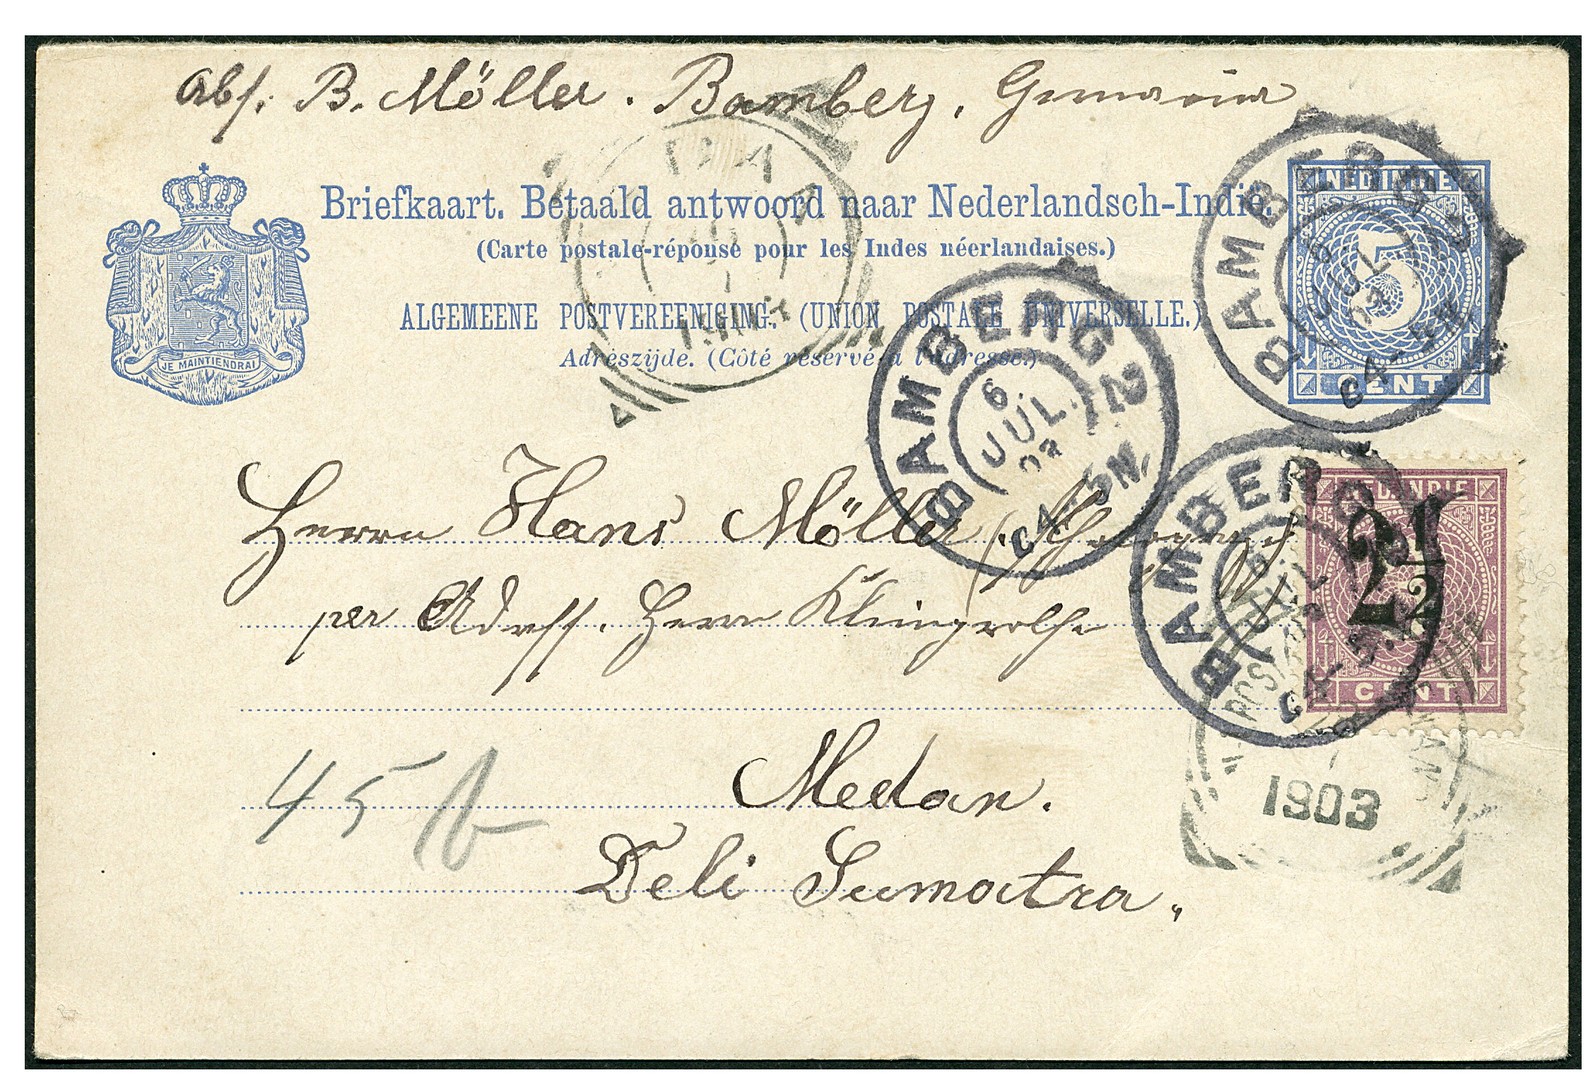 Abs. B. Möller. Bamberg, Germania
Briefkaart. Betaald antwoord naar Nederlandsch-Indië.
(Carte postale-réponse pour les Indes néerlandaises.)
ALGEMEENE POSTVEREENIGING. (UNION POSTALE UNIVERSELLE.)
Adreszijde. (Côté réservé à l'adresse.)
JE MAINTIENDRAI
NED. INDIE
5
CENT
BAMBERG
6
JUL
03
C4-5N.
BAMBERG 2
6
JUL.
03
C4-5N.
Herrn Hans Möller
per Adress. Herrn Klingrolhe
Medan.
Deli Sumatra.
45
NED. INDIE
2 1/2
CENT
BAMBERG
JUL
C4-5N.
1903